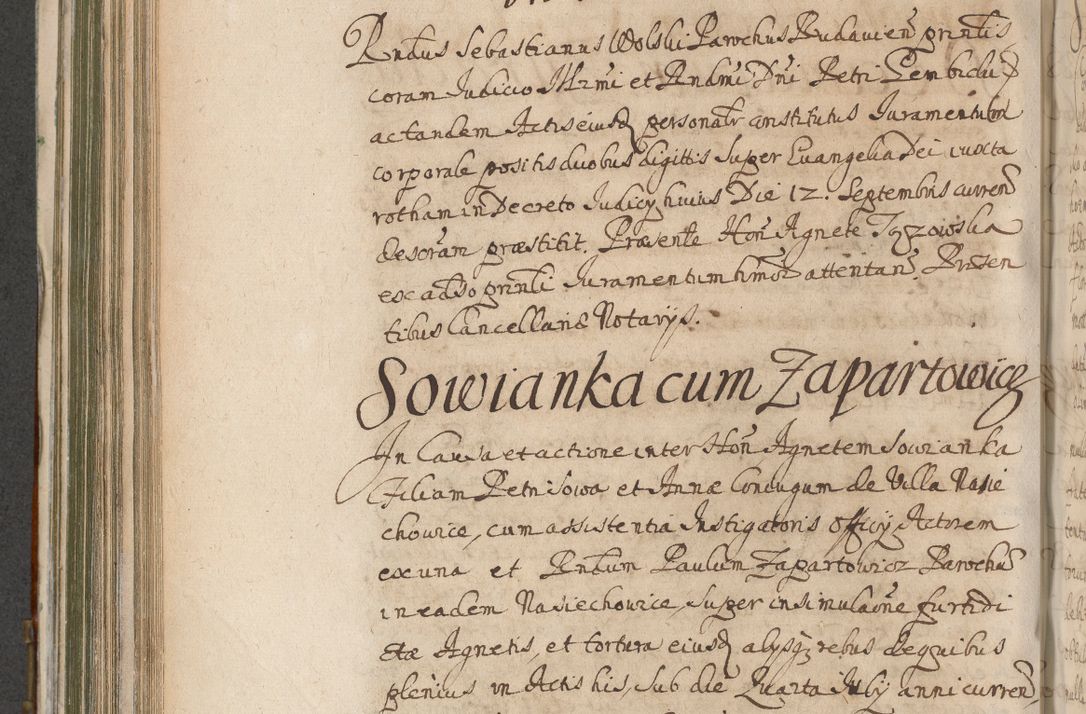 Rndus Sebastianus Wolski Parochus Rudavien̄ prntis
coram Judicio Illrmi et Rndmi Dni Petri Gembicki
ac tandem Actis eiusq personalr constitutus Juramentum
corporale positis duobus digittis super Evangelia Dei iuxta
rotham in Decreto Judicÿ huius Die 12. Septembris curren̄
descrām præstitit. Præsente Hon̄ Agnete Tyzowska
ex adso prnti Juramentum hmōi attentan̄. Præsen
tibus Cancellariæ Notarÿs.
Sowianka cum Zapartowicz
In Causa et actione inter Hon̄ Agnetem Sowianka
Filiam Petri Sowa et Annæ Coniugum de Villa Nasie
chowice, cum assistentia Instigatoris Officÿ Actorem
ex una et Rndum Paulum Zapartowicz Parochū
in eadem Nasiechowice, super insimulaōne furti di
ctæ Agnetis, et tortura eiusq alÿsq rebus de quibus
plenius in Actis his, sub die Quarta Julÿ anni curren̄